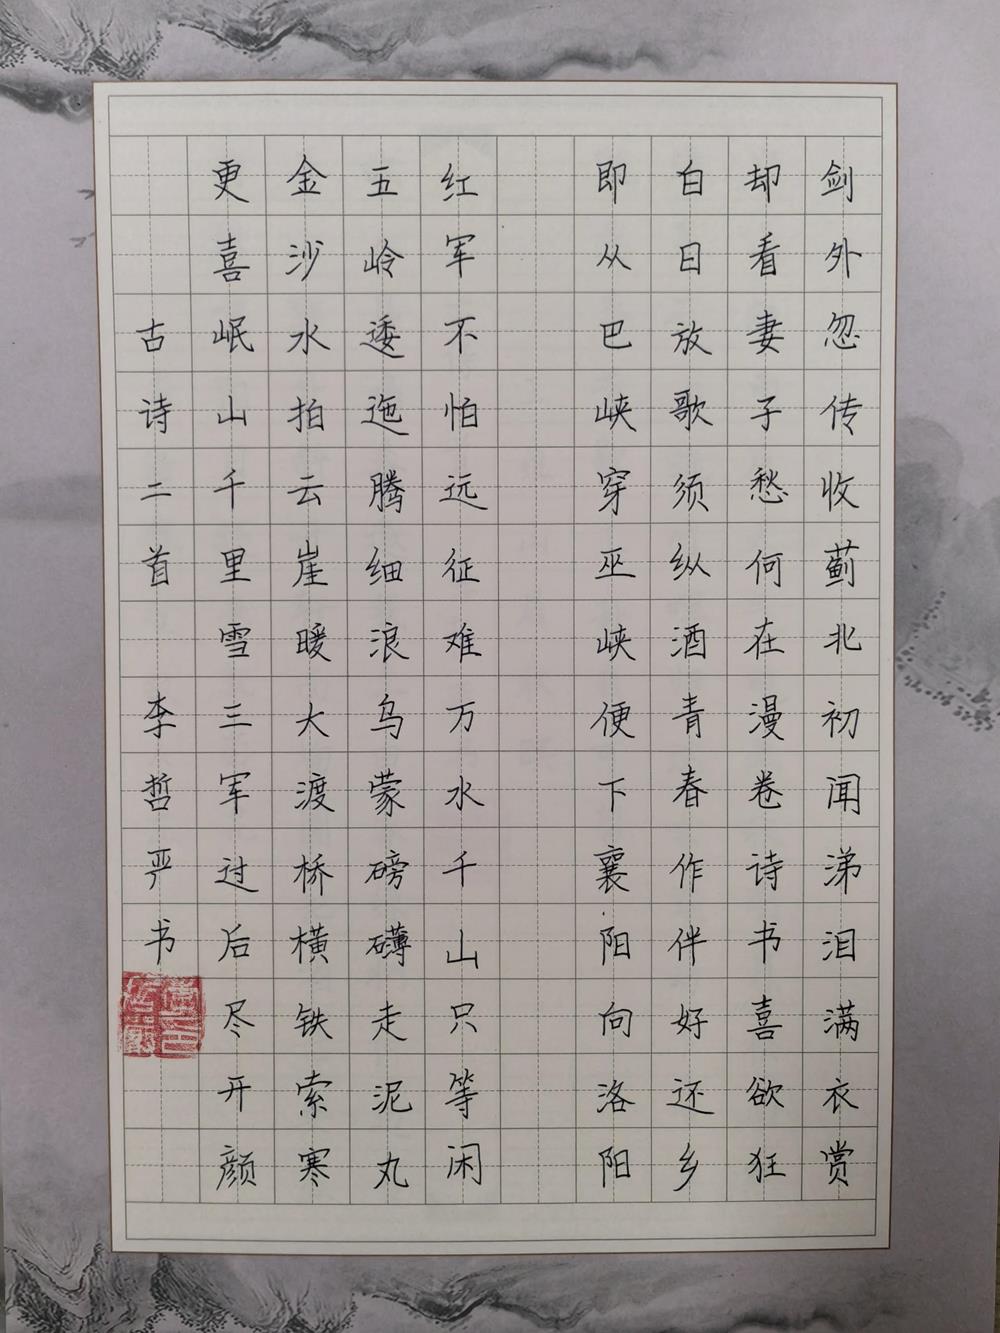 剑外忽传收蓟北初闻涕泪满衣赏
却看妻子愁何在漫卷诗书喜欲狂
白日放歌须纵酒青春作伴好还乡
即从巴峡穿巫峡便下襄阳向洛阳
红军不怕远征难万水千山只等闲
五岭逶迤腾细浪乌蒙磅礴走泥丸
金沙水拍云崖暖大渡桥横铁索寒
更喜岷山千里雪三军过后尽开颜
古诗二首 李哲严书